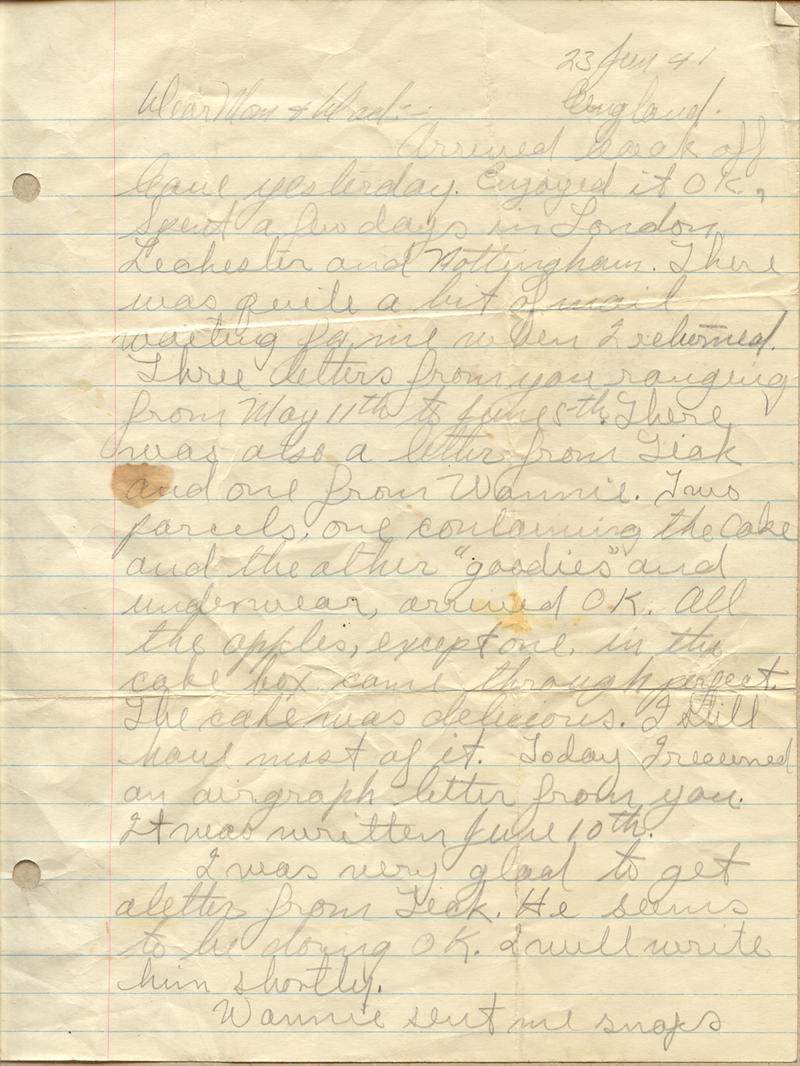 23 Jun 41
Dear Mom & Dad:- England.
Arrived back off
leave yesterday. Enjoyed it OK.,
Spent a few days in London,
Lechester and Nottingham. There
was quite a bit of mail
waiting for me when I returned.
Three letters from you ranging
from May 11th to June 5th. There
was also a letter from Teak
and one from Wannie. Two
parcels, one containing the cake
and the other "goodies" and
underwear, arrived O.K. All
the apples, except one, in the
cake box came through perfect.
The cake was delicious. I still
have most of it. Today I received
an airgraph letter from you.
It was written June 10th.
I was very glad to get
a letter from Teak. He seems
to be doing OK. I will write
him shortly.
Wannie sent me snaps